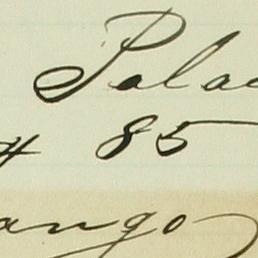 Pala
85
ango